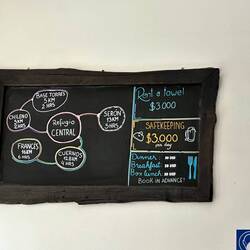 BASE TORRES
5 KM
2 HRS
CHILENO
5 KM
2 HRS
Refugio
CENTRAL
SERÓN
13 KM
3 HRS
FRANCÉS
16 KM
6 HRS
CUERNOS
12.8 KM
4 HRS
Rent a towel
$3.000
SAFEKEEPING
$3.000
per day
Dinner:
Breakfast:
Box lunch
BOOK IN ADVANCE!